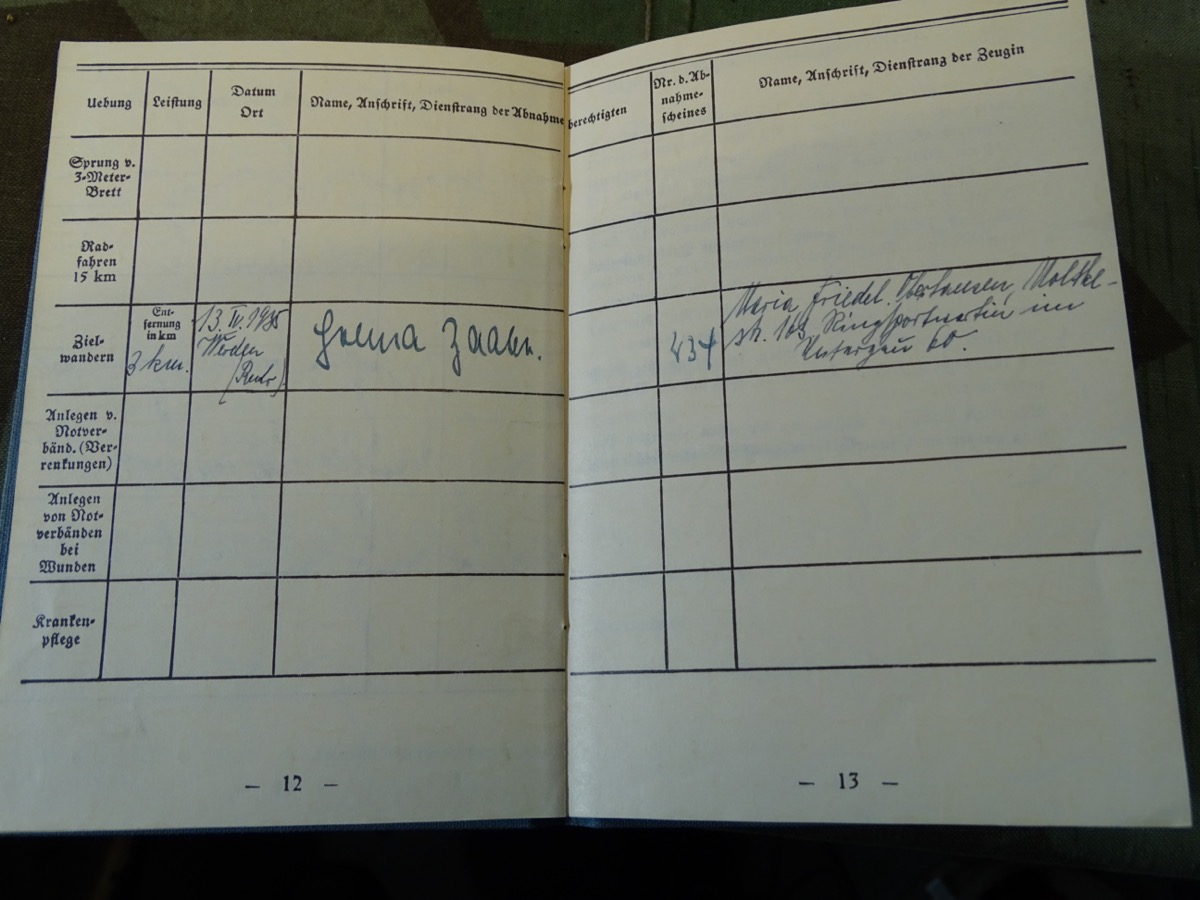 Uebung
Leistung
Datum
Ort
Name, Anschrift, Dienstrang der Abnahme
berechtigten
Nr. d. Ab-
nahme-
scheines
Name, Anschrift, Dienstrang der Zeugin
Sprung v.
3-Meter-
Brett
Rad-
fahren
15 km
Ziel-
wandern
Ent-
fernung
in km
3 km.
13. IV. 1935
Werden
(Ruhr)
434
Maria Friedel. Oberhausen, Moltke-
str. Ringsportwartin im
Untergau 60.
Anlegen v.
Notver-
bänd. (Ver-
renkungen)
Anlegen
von Not-
verbänden
bei
Wunden
Kranken-
pflege
— 12 —
— 13 —